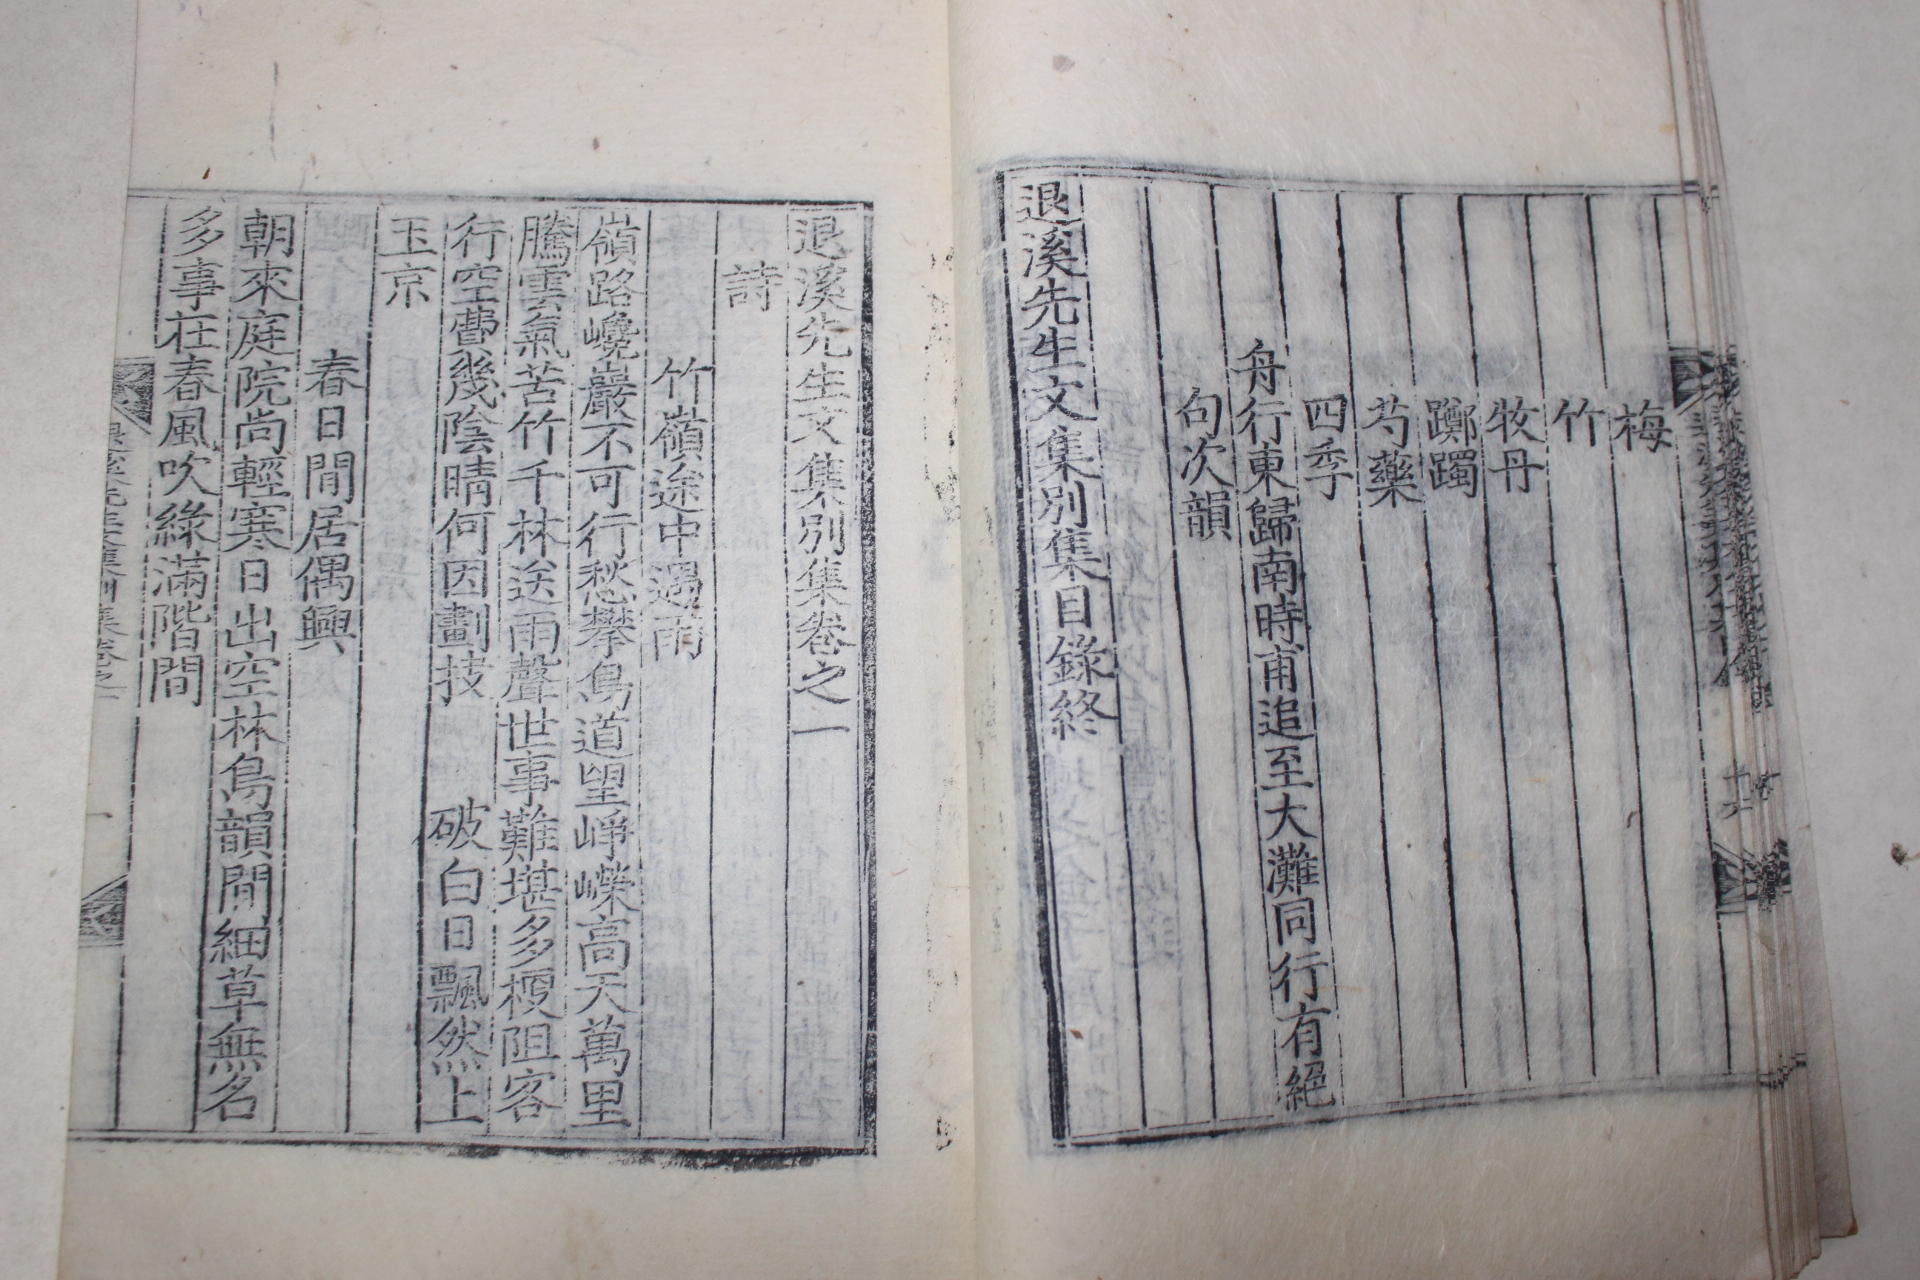 梅
竹
牧丹
躑躅
芍藥
四季
舟行東歸南時甫追至大灘同行有絕
句次韻
退溪先生文集別集目錄終
退溪先生文集別集卷之一
詩
竹嶺途中遇雨
嶺路巉巖不可行愁攀鳥道望崢嶸高天萬里
騰雲氣苦竹千林送雨聲世事難堪多梗阻客
行空費幾陰晴何因劃技破白日飄然上
玉京
春日閒居偶興
朝來庭院尚輕寒日出空林鳥韻閒細草無名
多事在春風吹綠滿階間